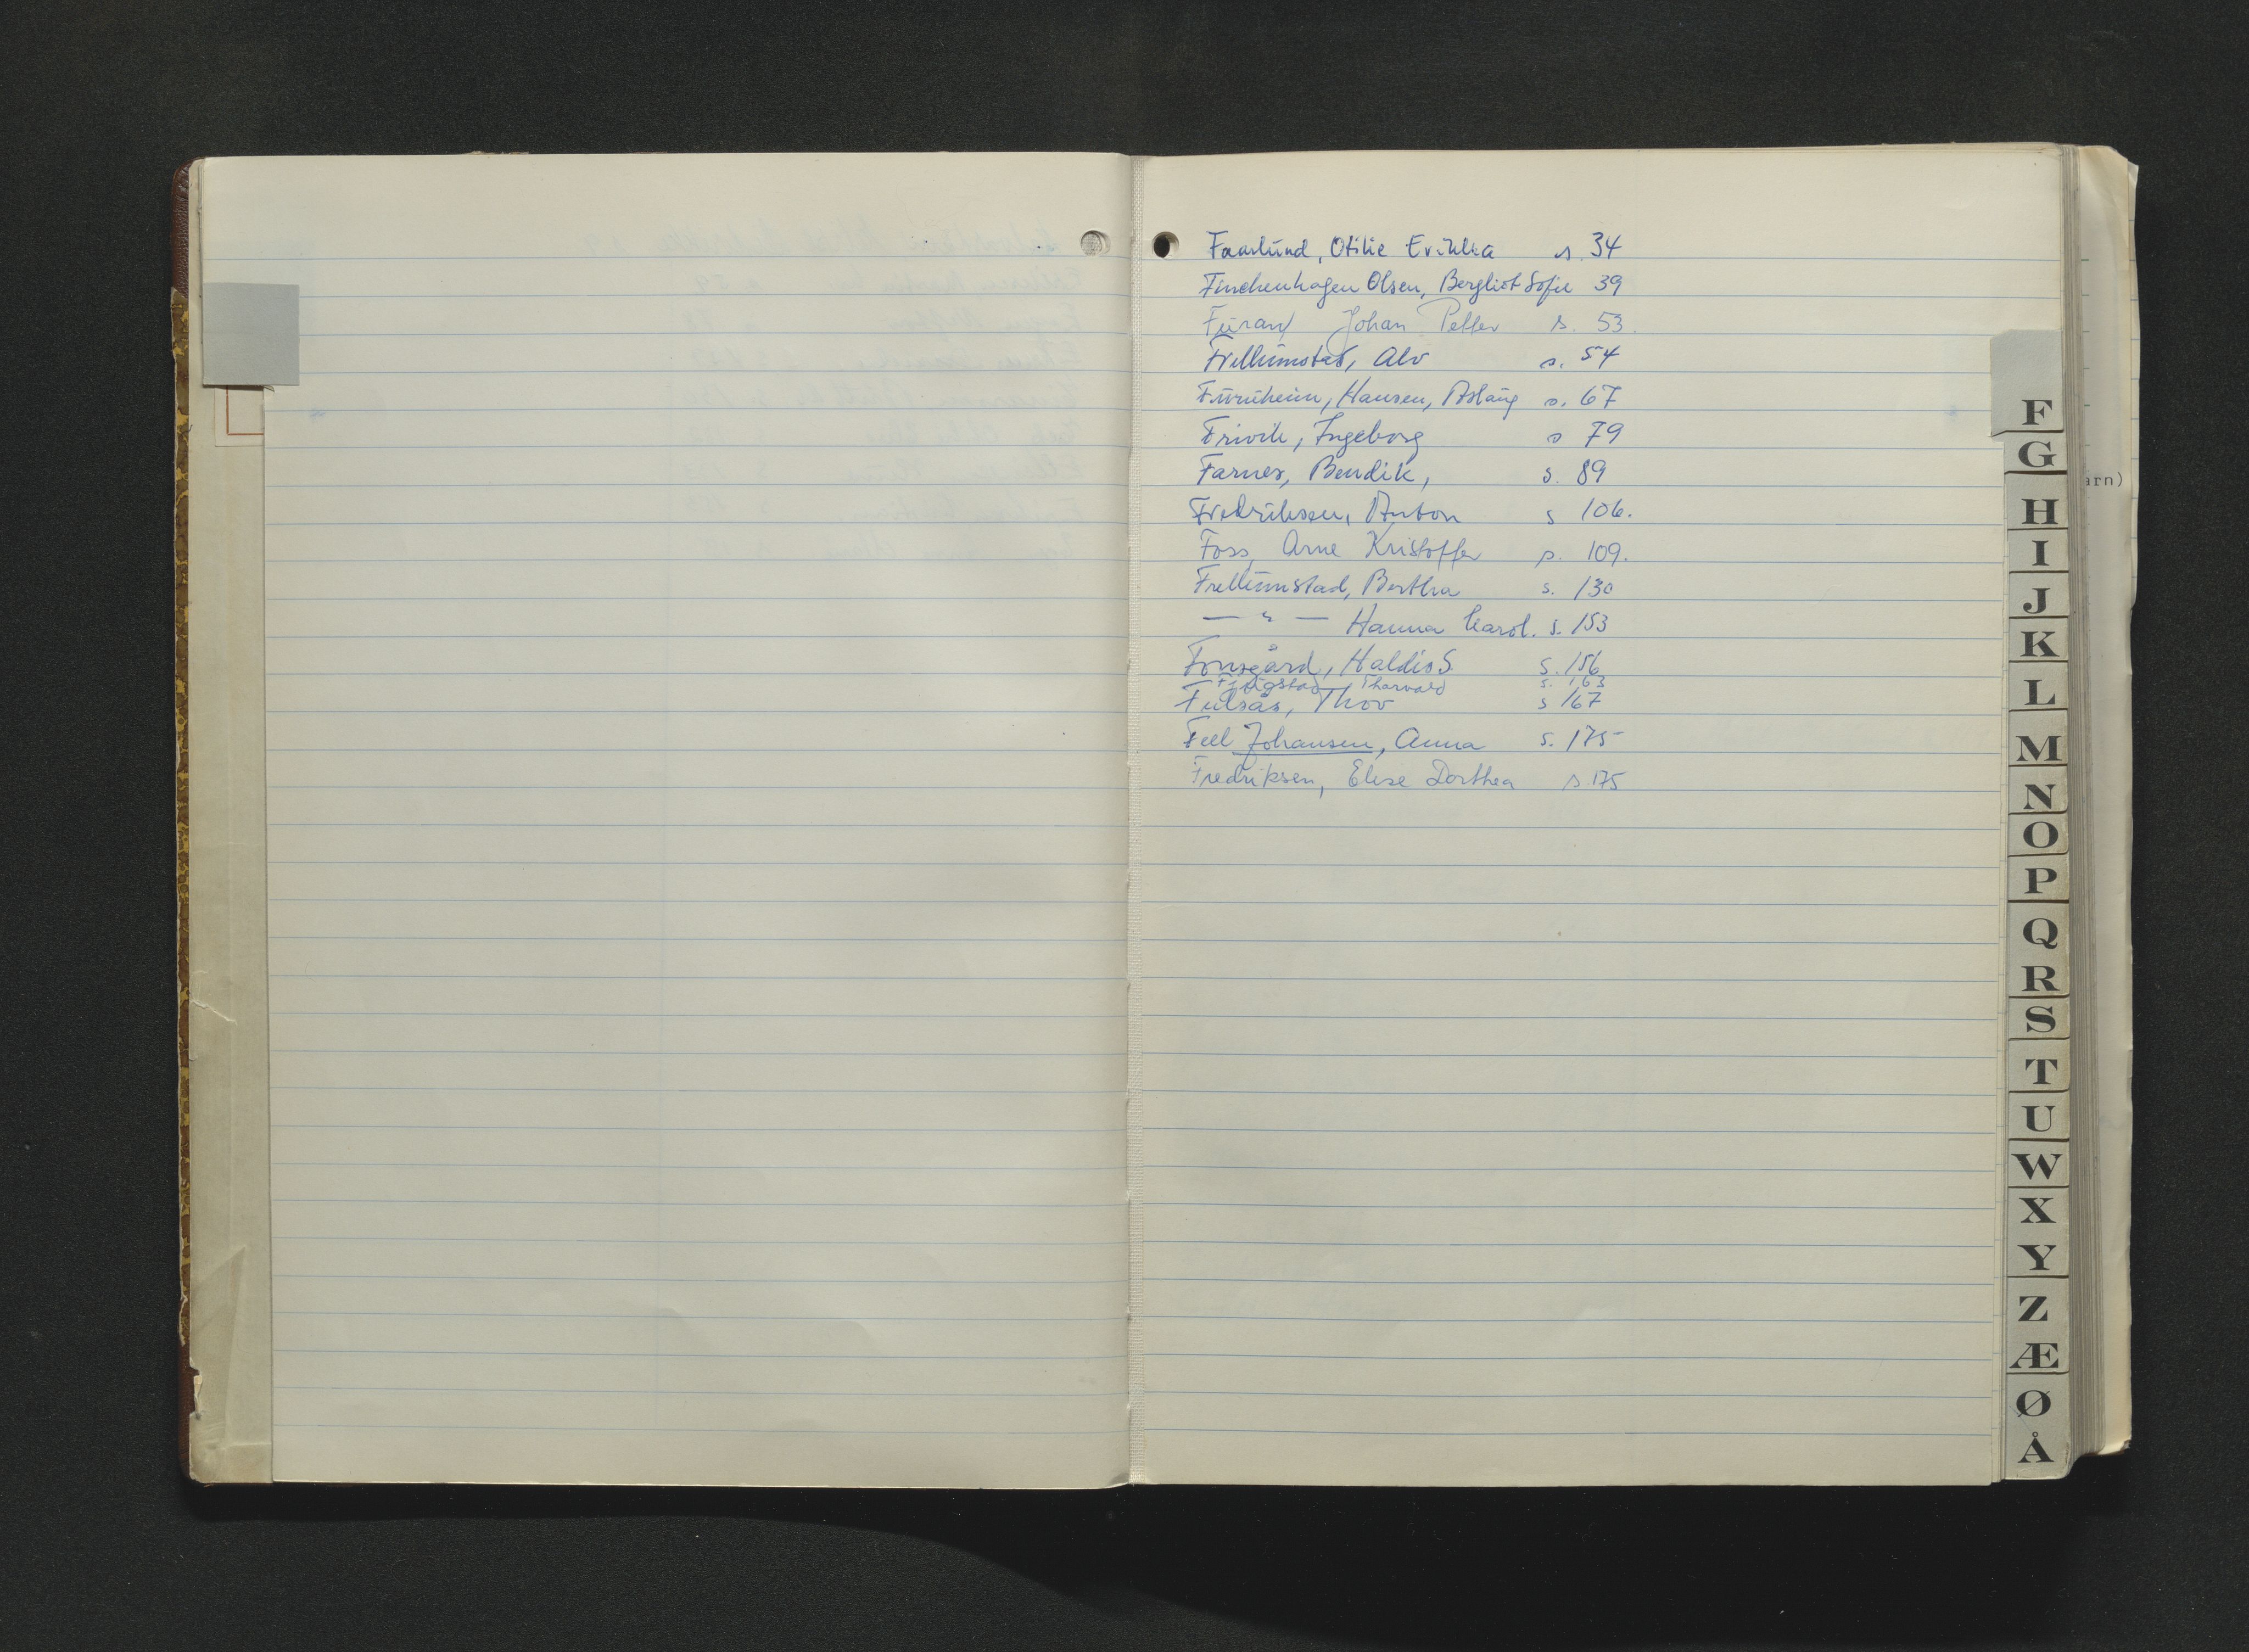 Faarlund, Otilie Erikka s. 34
Finchenhagen Olsen, Bergliot Sofie 39
Furand Johan Petter s. 53.
Frellumstad, Alv s. 54
Furuheim, Hansen, Aslaug s. 67
Frivik, Ingeborg s 79
Farnes, Bendik, s. 89
Fredriksen, Anton s 106.
Foss, Arne Kristoffer s. 109.
Frellumstad, Bertha s. 130
— " — Hanna Karol. s. 153
Fonsgård, Haldis S s. 156
Thorvald s. 163
Fulsås, Thov s 167
Feel Johansen, Anna s. 175
Fredriksen, Elise Dorthea s. 175
F
G
H
I
J
K
L
M
N
O
P
Q
R
S
T
U
W
X
Y
Z
Æ
Ø
Å
arn)